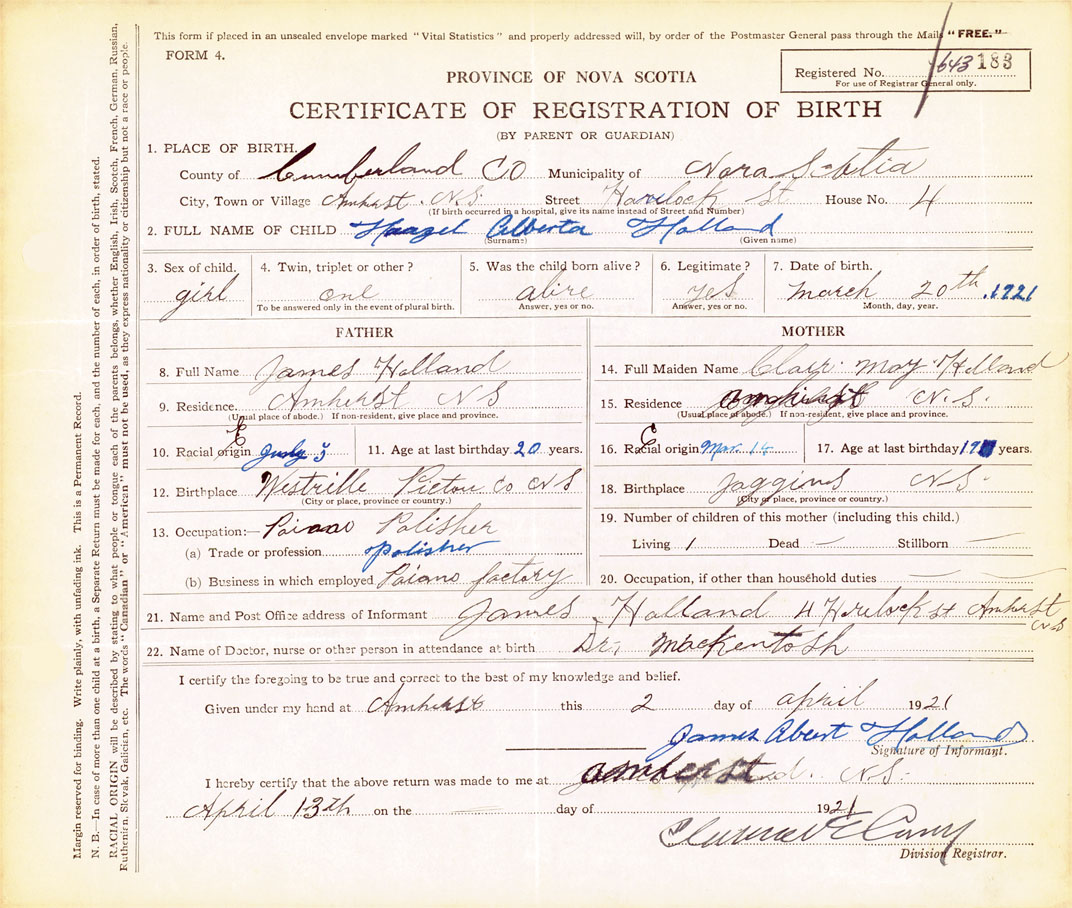 This form if placed in an unsealed envelope marked "Vital Statistics" and properly addressed will, by order of the Postmaster General pass through the Mails "FREE."
FORM 4.
Registered No. 643 183
For use of Registrar General only.
PROVINCE OF NOVA SCOTIA
CERTIFICATE OF REGISTRATION OF BIRTH
(BY PARENT OR GUARDIAN)
1. PLACE OF BIRTH.
County of Cumberland CO Municipality of Nova Scotia
City, Town or Village Amhest. N.S. Street Havelock St House No. 4
(If birth occurred in a hospital, give its name instead of Street and Number)
2. FULL NAME OF CHILD Haazel Alberta Holland
(Surname) (Given name)
3. Sex of child. 4. Twin, triplet or other? 5. Was the child born alive? 6. Legitimate? 7. Date of birth.
girl one alive yes March 20th, 1921
To be answered only in the event of plural birth. Answer, yes or no. Answer, yes or no. Month, day, year.
FATHER
8. Full Name James Holland
9. Residence. Amherst NS
(Usual place of abode.) If non-resident, give place and province.
10. Racial origin E July 3 11. Age at last birthday 20 years.
12. Birthplace Westville Pictou Co NS
(City or place, province or country.)
13. Occupation:— Paiano Polisher
(a) Trade or profession polisher
(b) Business in which employed Paiano factory
MOTHER
14. Full Maiden Name May Holland
15. Residence Amherst N.S.
(Usual place of abode.) If non-resident, give place and province.
16. Racial origin Mar. 14 17. Age at last birthday years.
18. Birthplace Joggins N.S.
(City or place, province or country.)
19. Number of children of this mother (including this child.)
Living 1 Dead — Stillborn —
20. Occupation, if other than household duties —
21. Name and Post Office address of Informant James Holland 4 Havelock st Amherst NS
22. Name of Doctor, nurse or other person in attendance at birth Dr, Mackentosh
I certify the foregoing to be true and correct to the best of my knowledge and belief.
Given under my hand at Amherst this 2 day of april 1921
James Abert Holland
Signature of Informant.
I hereby certify that the above return was made to me at amherst N.S.
April 13th on the day of 1921
Division Registrar.
Margin reserved for binding. Write plainly, with unfading ink. This is a Permanent Record.
N. B.—In case of more than one child at a birth, a Separate Return must be made for each, and the number of each, in order of birth, stated.
RACIAL ORIGIN will be described by stating to what people or tongue each of the parents belongs, whether English, Irish, Scotch, French, German, Russian,
Ruthenirn, Slovak, Galician, etc. The words "Canadian" or "American" must not be used, as they express nationality or citizenship but not a race or people.